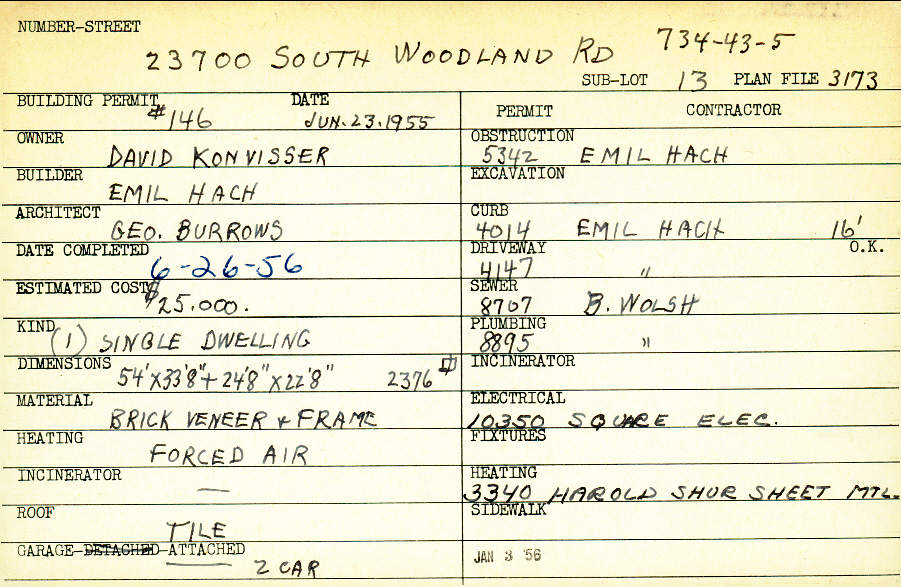 NUMBER-STREET
23700 SOUTH WOODLAND RD 734-43-5
SUB-LOT 13 PLAN FILE 3173
BUILDING PERMIT #146 DATE JUN. 23. 1955
OWNER DAVID KONVISSER
BUILDER EMIL HACH
ARCHITECT GEO. BURROWS
DATE COMPLETED 6-26-56
ESTIMATED COST $25.000.
KIND (1) SINGLE DWELLING
DIMENSIONS 54'X33'8"+ 24'8"X22'8" 2376
MATERIAL BRICK VENEER & FRAME
HEATING FORCED AIR
INCINERATOR —
ROOF TILE
GARAGE-DETACHED-ATTACHED
2 CAR
PERMIT CONTRACTOR
OBSTRUCTION 5342 EMIL HACH
EXCAVATION
CURB 4014 EMIL HACH 16'
DRIVEWAY 4147 " O.K.
SEWER 8707 B. WOLSH
PLUMBING 8895 "
INCINERATOR
ELECTRICAL 10350 SQUARE ELEC.
FIXTURES
HEATING 3340 HAROLD SHUR SHEET MTL.
SIDEWALK
JAN 3 '56